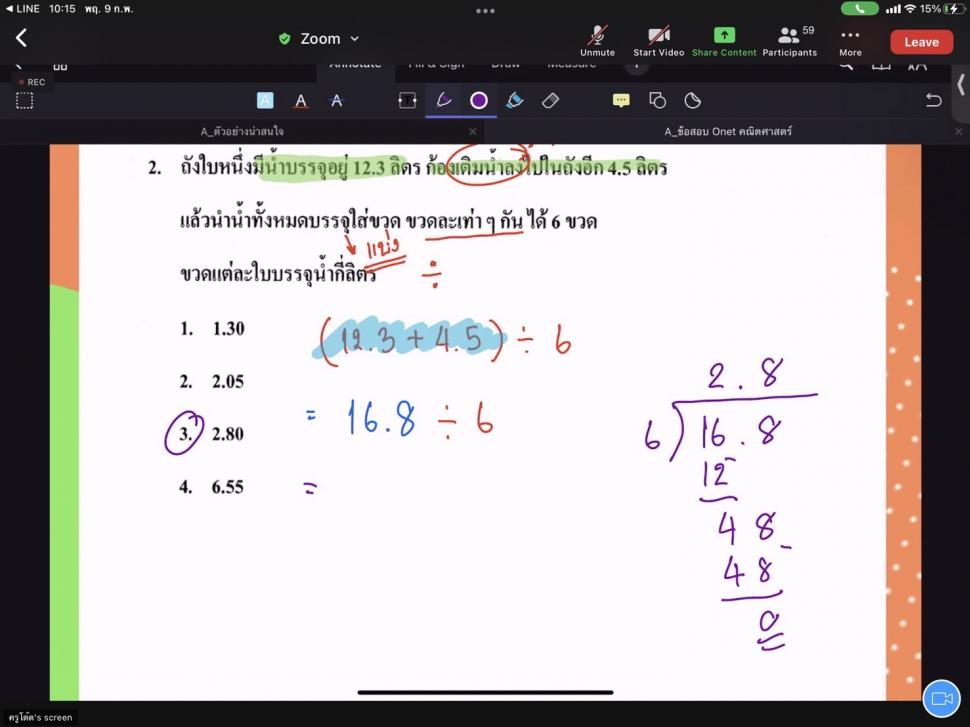 LINE 10:15 พฤ. 9 ก.พ. 15%
Zoom
Unmute Start Video Share Content Participants 59 More Leave
REC
Annotate Fill & Sign Draw Measure
A A A T
A_ตัวอย่างน่าสนใจ A_ข้อสอบ Onet คณิตศาสตร์
2. ถังใบหนึ่งมีน้ำบรรจุอยู่ 12.3 ลิตร ก้องเติมน้ำลงไปในถังอีก 4.5 ลิตร
แล้วนำน้ำทั้งหมดบรรจุใส่ขวด ขวดละเท่า ๆ กัน ได้ 6 ขวด
แบ่ง
ขวดแต่ละใบบรรจุน้ำกี่ลิตร ÷
1. 1.30
(12.3 + 4.5) ÷ 6
2. 2.05
= 16.8 ÷ 6
3. 2.80
4. 6.55 =
2.8
6) 16.8
12 -
48 -
48
0
ครูโต๊ด's screen